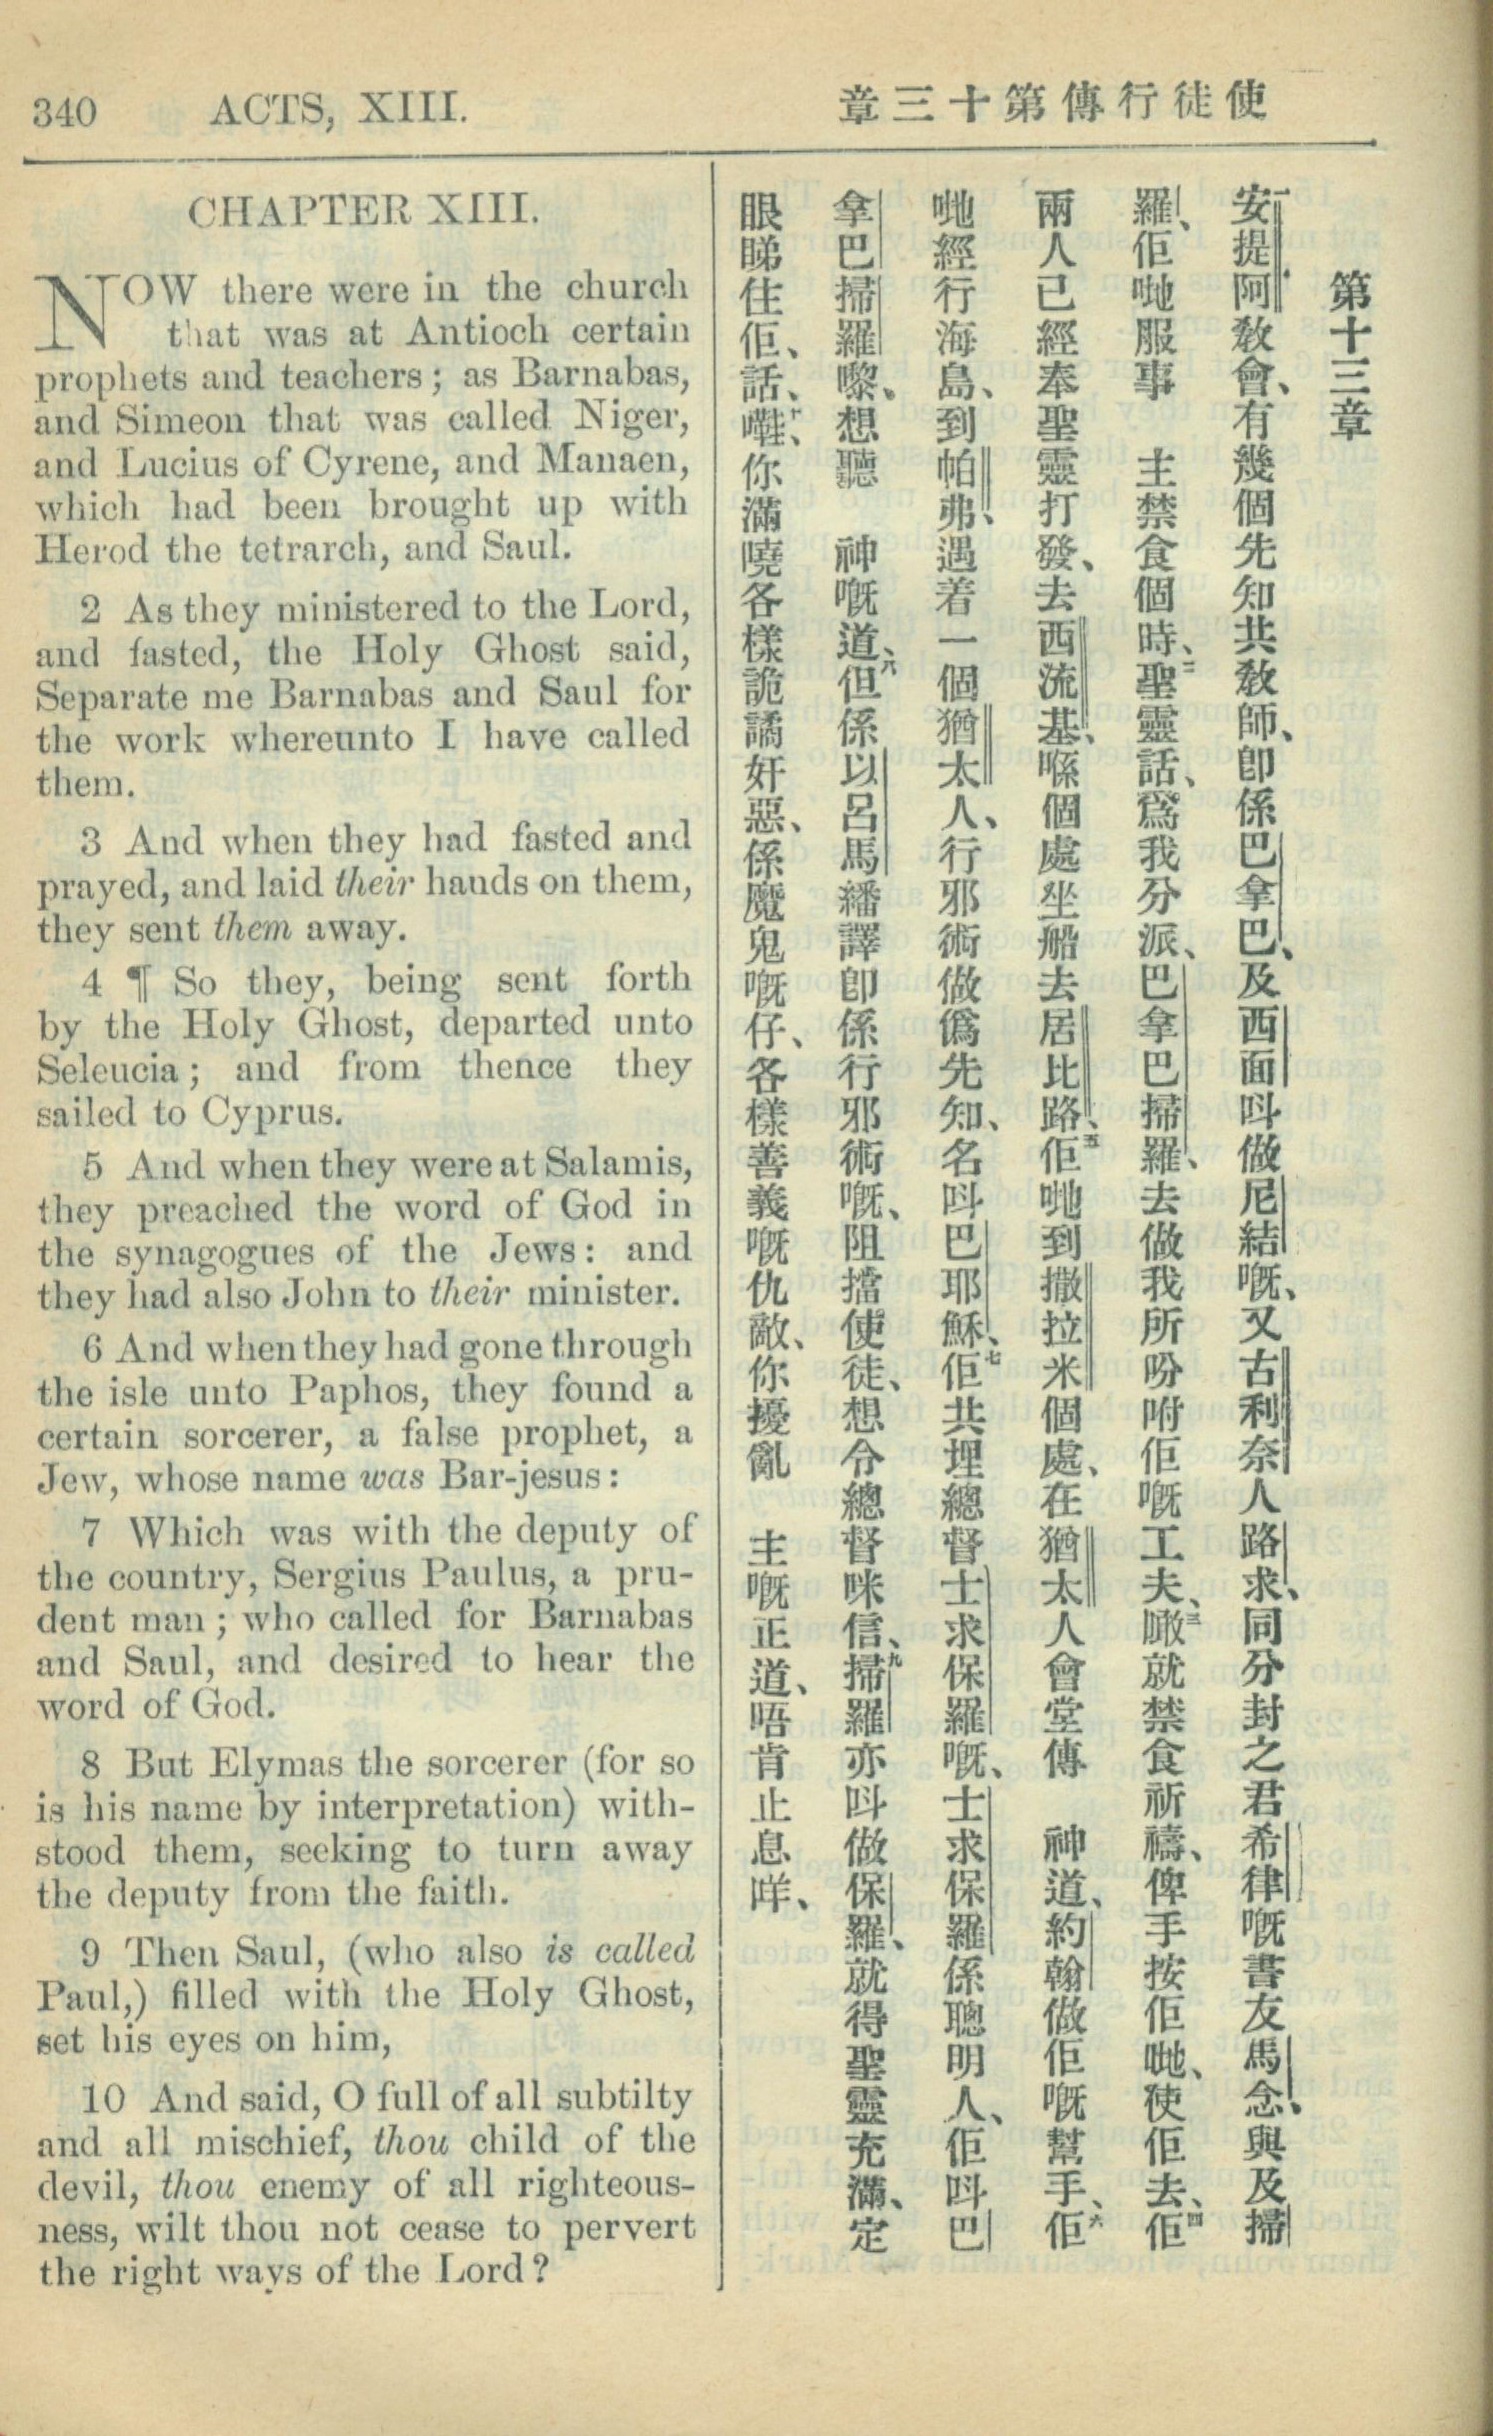 340 ACTS, XIII.
章三十第傳行徒使
CHAPTER XIII.
NOW there were in the church
that was at Antioch certain
prophets and teachers; as Barnabas,
and Simeon that was called Niger,
and Lucius of Cyrene, and Manaen,
which had been brought up with
Herod the tetrarch, and Saul.
2 As they ministered to the Lord,
and fasted, the Holy Ghost said,
Separate me Barnabas and Saul for
the work whereunto I have called
them.
3 And when they had fasted and
prayed, and laid their hands on them,
they sent them away.
4 ¶ So they, being sent forth
by the Holy Ghost, departed unto
Seleucia; and from thence they
sailed to Cyprus.
5 And when they were at Salamis,
they preached the word of God in
the synagogues of the Jews: and
they had also John to their minister.
6 And when they had gone through
the isle unto Paphos, they found a
certain sorcerer, a false prophet, a
Jew, whose name was Bar-jesus:
7 Which was with the deputy of
the country, Sergius Paulus, a pru-
dent man; who called for Barnabas
and Saul, and desired to hear the
word of God.
8 But Elymas the sorcerer (for so
is his name by interpretation) with-
stood them, seeking to turn away
the deputy from the faith.
9 Then Saul, (who also is called
Paul,) filled with the Holy Ghost,
set his eyes on him,
10 And said, O full of all subtilty
and all mischief, thou child of the
devil, thou enemy of all righteous-
ness, wilt thou not cease to pervert
the right ways of the Lord?
第十三章
一安提阿教會、有幾個先知共教師、卽係巴拿巴、及西面呌做尼結嘅、又古利奈人路求、同分封之君希律嘅書友馬念、與及掃
羅、佢哋服事　主禁食個時、二聖靈話、爲我分派、巴拿巴掃羅、去做我所吩咐佢嘅工夫、三噉就禁食祈禱、俾手按佢哋、使佢去、四佢
兩人已經奉聖靈打發、去西流基、喺個處坐船去居比路、五佢哋到撒拉米個處、在猶太人會堂傳　神道、約翰做佢嘅幫手、六佢
哋經行海島、到帕弗、遇着一個猶太人、行邪術做僞先知、名呌巴耶穌、七佢共埋總督士求保羅嘅、士求保羅係聰明人、佢呌巴
拿巴掃羅嚟、想聽　神嘅道、八但係以呂馬繙譯卽係行邪術嘅、阻擋使徒、想令總督咪信、九掃羅亦呌做保羅、就得聖靈充滿、定
眼睇住佢、話、十囉、你滿嘵各樣詭譎奸惡、係魔鬼嘅仔、各樣善義嘅仇敵、你擾亂　主嘅正道、唔肯止息咩、